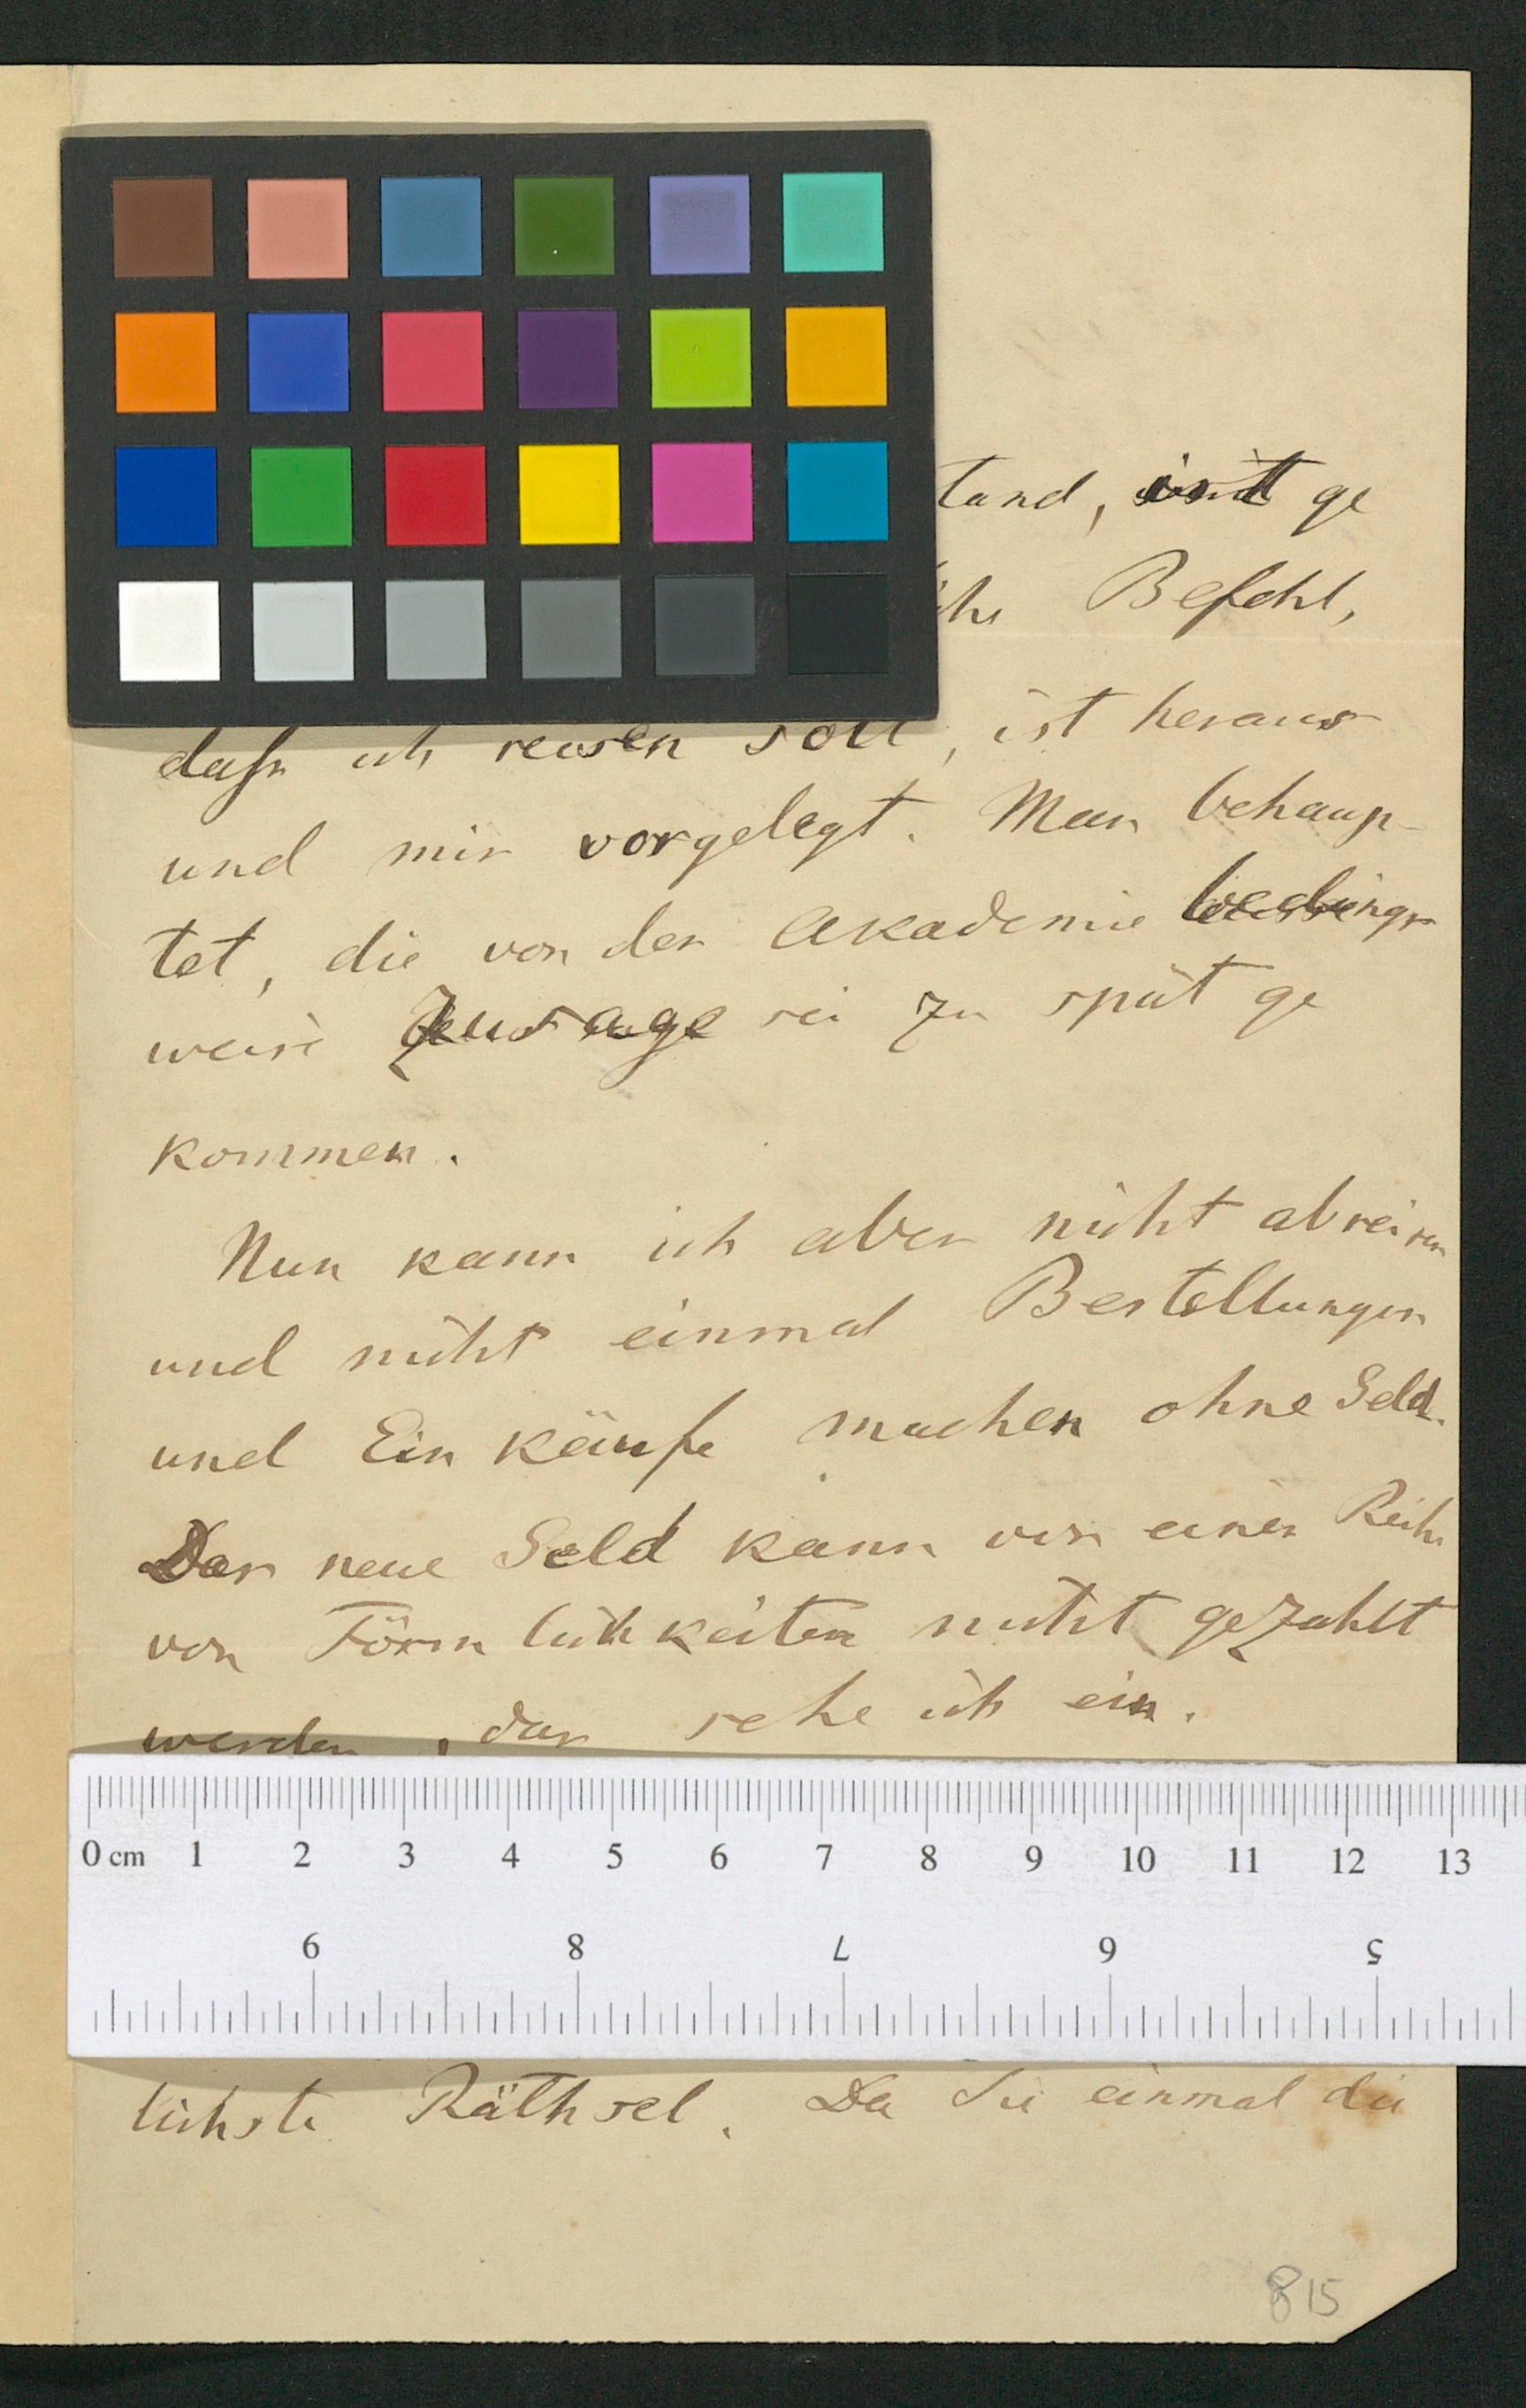 tand, ist ge
Befehl,
dass ich reisen soll, ist heraus
und mir vorgelegt. Man behaup-
tet, die von der Akademie bedings
weise Zusage sei zu spät ge
kommen.
Nun kann ich aber nicht abreisen
und nicht einmal Bestellungen
und Einkäufe machen ohne Geld.
Das neue Geld kann vor einer Reihe
von Förmlichkeiten nicht gezahlt
werden, das sehe ich ein.
0 cm 1 2 3 4 5 6 7 8 9 10 11 12 13
9 8 7 6 5
lichste Räthsel. Da Sie einmal die
815